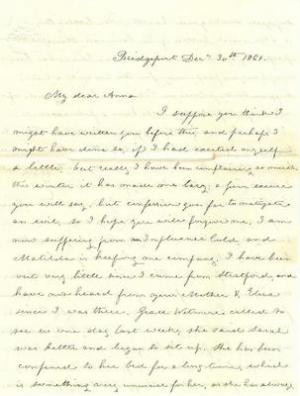 Bridgeport Dec. 30th 1861.
My dear Anna
I suppose you think I
might have written you before this, and perhaps I
might have done so, if I had exerted myself
a little, but really I have been complaining so much
this winter it has made me lazy, a poor excuse
you will say, but confession goes far to mitigate
an evil, so I hope you will forgive me, I am
now suffering from an Influenza Cold, and
Matilda is keeping me company. I have been
out very little since I came from Stratford, and
have not heard from your Mother & Eliza
since I was there. Grace Wetmore called to
see us one day last week, she said Sarah
was better and began to sit up. She has been
confined to her bed for a long time, which
is something very unusual for her, as she has always